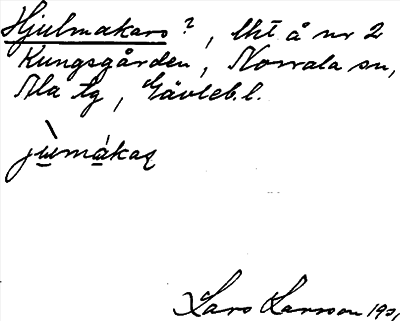 Hjulmakars?, lht å nr 2
Kungsgården, Norrala sn,
Ala tg, Gävleb. l.
jùmákaʂ
Lars Larsson 19